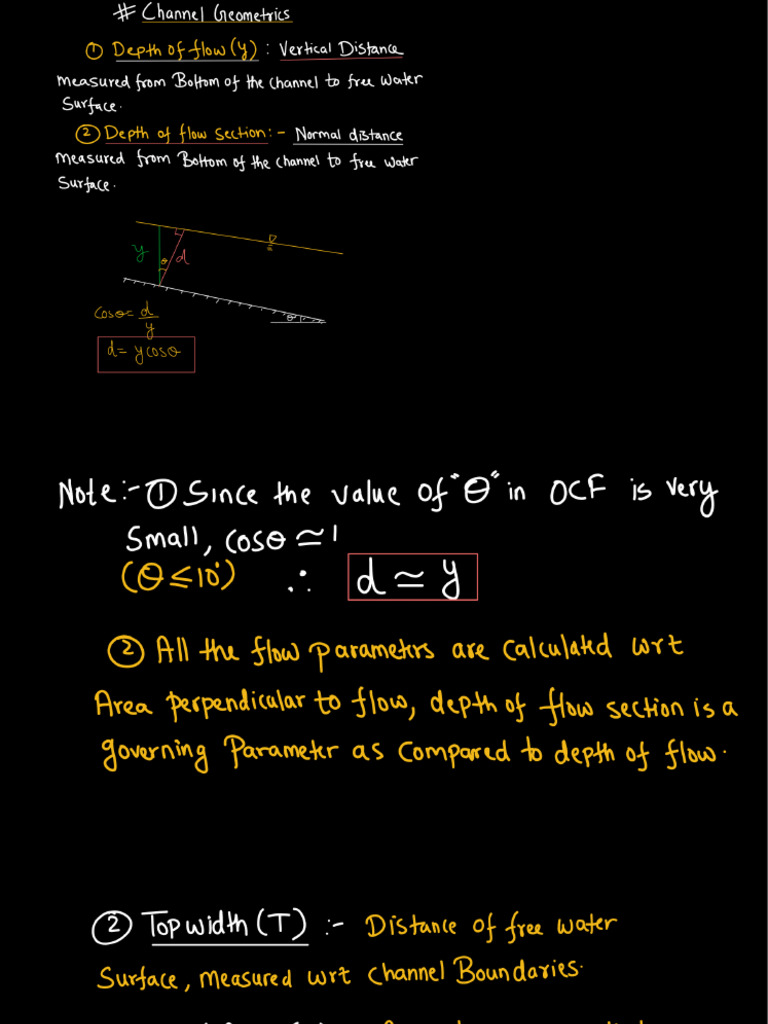 # Channel Geometrics
① Depth of flow (y) : Vertical Distance
measured from Bottom of the channel to free water
Surface.
② Depth of flow section:- Normal distance
measured from Bottom of the channel to free water
Surface.
y θ d
θ
cosθ= d/y
d= ycosθ
Note:- ① Since the value of "θ" in OCF is very
Small, cosθ ≃ 1
(θ ≤ 10°) ∴ d ≃ y
② All the flow parameters are calculated wrt
Area perpendicular to flow, depth of flow section is a
governing Parameter as compared to depth of flow.
② Top width (T) :- Distance of free water
Surface, measured wrt channel Boundaries.